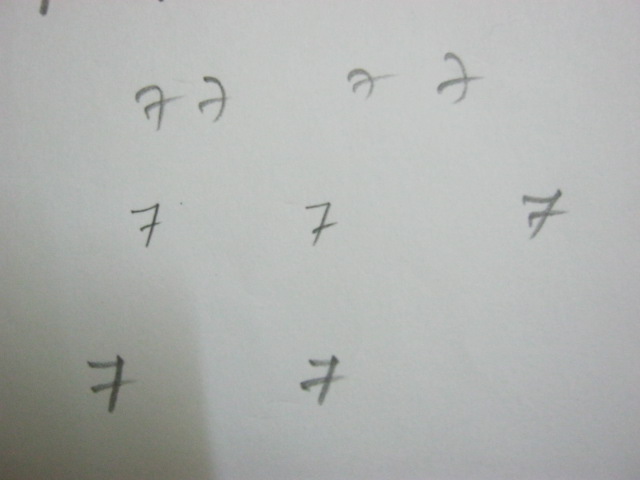 7 7 7 7
7 7 7
7 7